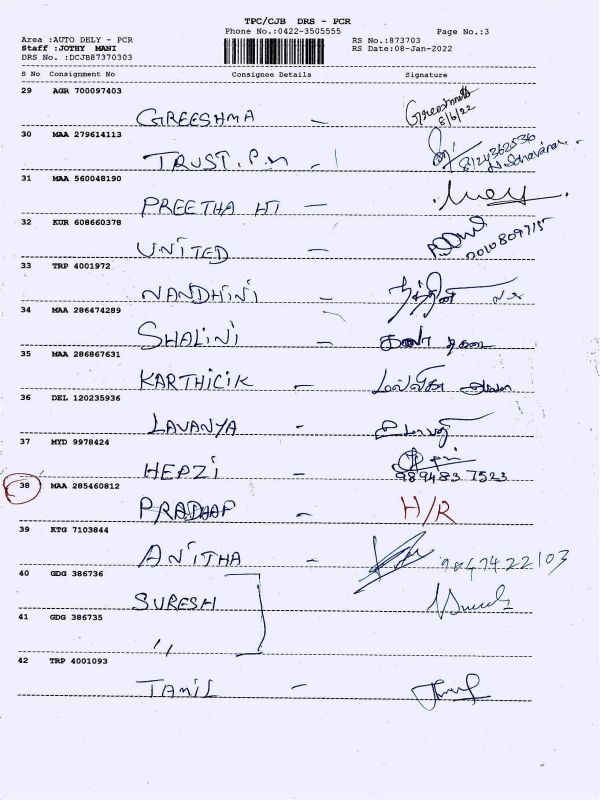 TPC/CJB DRS - PCR
Phone No.:0422-3505555
Page No.:3
Area :AUTO DELY - PCR
Staff :JOTHY MANI
DRS No. :DCJB87370303
RS No.:873703
RS Date:08-Jan-2022
S No Consignment No Consignee Details Signature
29 AGR 700097403
GREESHMA - Greeshma
8/6/22
30 MAA 279614113
TRUST. P.M - 8124362536
31 MAA 560048190
PREETHA HI -
32 KUR 608660378
UNITED -
33 TRP 4001972
NANDHINI - நந்தினி
34 MAA 286474289
SHALINI -
35 MAA 286867631
KARTHICIK -
36 DEL 120235936
LAVANYA -
37 MYD 9978424
HEPZI - 989483 7523
38 MAA 285460812
PRADHAP - H/R
39 KTG 7103844
ANITHA - 9847422103
40 GDG 386736
SURESH
41 GDG 386735
,,
42 TRP 4001093
TAMIL -